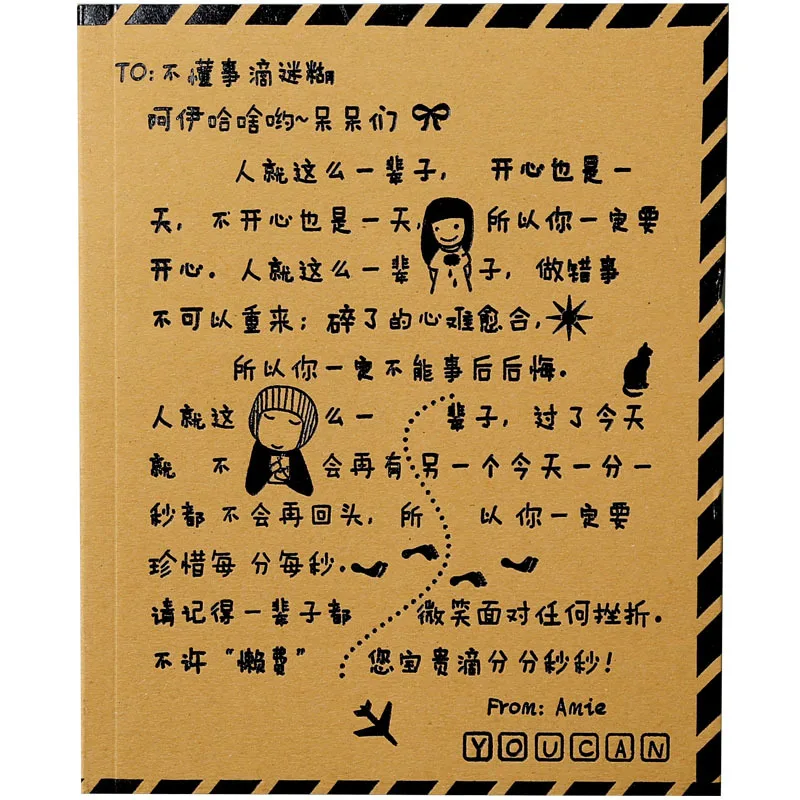 TO:不懂事滴迷糊
阿伊哈啥哟~呆呆们
人就这么一辈子,开心也是一
天,不开心也是一天,所以你一定要
开心。人就这么一辈子,做错事
不可以重来;碎了的心难愈合,
所以你一定不能事后后悔。
人就这么一辈子,过了今天
就不会再有另一个今天一分一
秒都不会再回头,所以你一定要
珍惜每分每秒.
请记得一辈子都微笑面对任何挫折。
不许“懒费”您宝贵滴分分秒秒!
From: Amie
YOUCAN